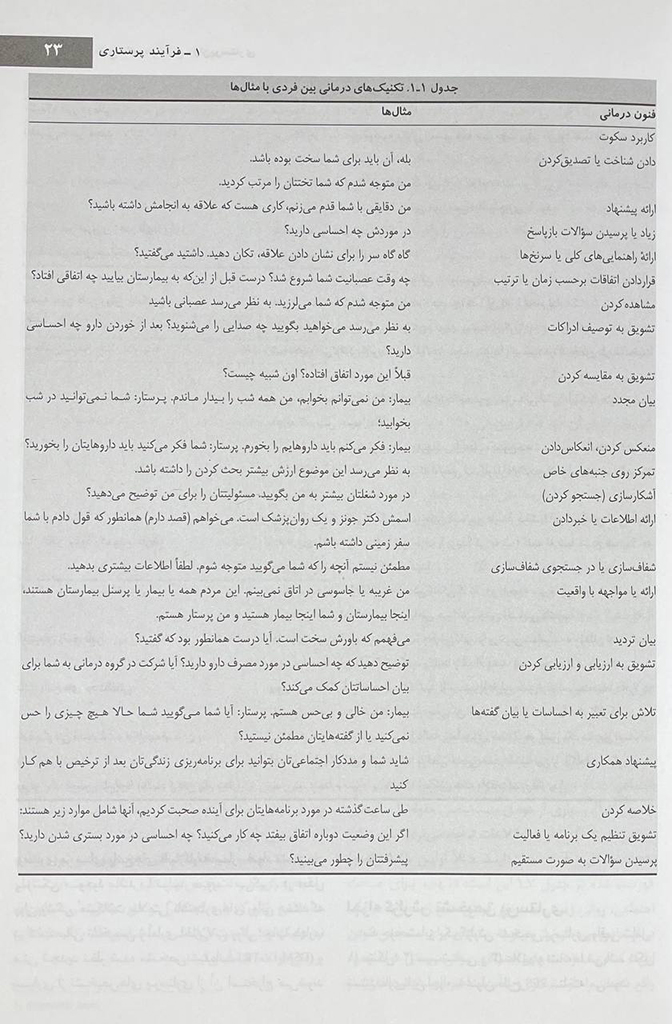 ۱ ـ فرآیند پرستاری
۲۳
جدول ۱ـ۱. تکنیک‌های درمانی بین فردی با مثال‌ها
فنون درمانی مثال‌ها
کاربرد سکوت
دادن شناخت یا تصدیق‌کردن بله، آن باید برای شما سخت بوده باشد.
من متوجه شدم که شما تختتان را مرتب کردید.
ارائه پیشنهاد من دقایقی با شما قدم می‌زنم، کاری هست که علاقه به انجامش داشته باشید؟
زیاد یا پرسیدن سؤالات بازپاسخ در موردش چه احساسی دارید؟
ارائهٔ راهنمایی‌های کلی یا سرنخ‌ها گاه گاه سر را برای نشان دادن علاقه، تکان دهید. داشتید می‌گفتید؟
قراردادن اتفاقات برحسب زمان یا ترتیب چه وقت عصبانیت شما شروع شد؟ درست قبل از این‌که به بیمارستان بیایید چه اتفاقی افتاد؟
مشاهده‌کردن من متوجه شدم که شما می‌لرزید. به نظر می‌رسد عصبانی باشید
تشویق به توصیف ادراکات به نظر می‌رسد می‌خواهید بگویید چه صدایی را می‌شنوید؟ بعد از خوردن دارو چه احساسی
دارید؟
تشویق به مقایسه کردن قبلاً این مورد اتفاق افتاده؟ اون شبیه چیست؟
بیان مجدد بیمار: من نمی‌توانم بخوابم، من همه شب را بیدار ماندم. پرستار: شما نمی‌توانید در شب
بخوابید؛
منعکس کردن، انعکاس‌دادن بیمار: فکر می‌کنم باید داروهایم را بخورم. پرستار: شما فکر می‌کنید باید داروهایتان را بخورید؟
تمرکز روی جنبه‌های خاص به نظر می‌رسد این موضوع ارزش بیشتر بحث کردن را داشته باشد.
آشکارسازی (جستجو کردن) در مورد شغلتان بیشتر به من بگویید. مسئولیتتان را برای من توضیح می‌دهید؟
ارائه اطلاعات یا خبردادن اسمش دکتر جونز و یک روان‌پزشک است. می‌خواهم (قصد دارم) همانطور که قول دادم با شما
سفر زمینی داشته باشم.
شفاف‌سازی یا در جستجوی شفاف‌سازی مطمئن نیستم آنچه را که شما می‌گویید متوجه شوم. لطفاً اطلاعات بیشتری بدهید.
ارائه یا مواجهه با واقعیت من غریبه یا جاسوسی در اتاق نمی‌بینم. این مردم همه یا بیمار یا پرسنل بیمارستان هستند،
اینجا بیمارستان و شما اینجا بیمار هستید و من پرستار هستم.
بیان تردید می‌فهمم که باورش سخت است. آیا درست همانطور بود که گفتید؟
تشویق به ارزیابی و ارزیابی کردن توضیح دهید که چه احساسی در مورد مصرف دارو دارید؟ آیا شرکت در گروه درمانی به شما برای
بیان احساساتتان کمک می‌کند؟
تلاش برای تعبیر به احساسات یا بیان گفته‌ها بیمار: من خالی و بی‌حس هستم. پرستار: آیا شما می‌گویید شما حالا هیچ چیزی را حس
نمی‌کنید یا از گفته‌هایتان مطمئن نیستید؟
پیشنهاد همکاری شاید شما و مددکار اجتماعی‌تان بتوانید برای برنامه‌ریزی زندگی‌تان بعد از ترخیص با هم کار
کنید
خلاصه کردن طی ساعت گذشته در مورد برنامه‌هایتان برای آینده صحبت کردیم، آنها شامل موارد زیر هستند:
تشویق تنظیم یک برنامه یا فعالیت اگر این وضعیت دوباره اتفاق بیفتد چه کار می‌کنید؟ چه احساسی در مورد بستری شدن دارید؟
پرسیدن سؤالات به صورت مستقیم پیشرفتتان را چطور می‌بینید؟